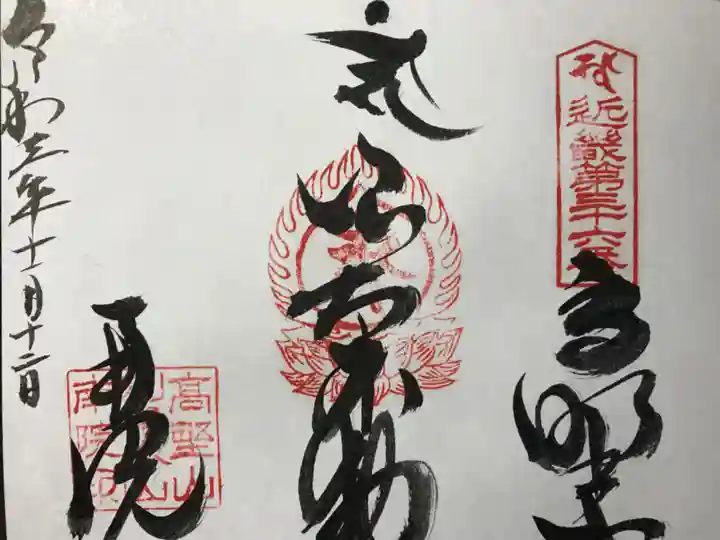 近畿第三十六番
高野山
浪切不動
南院
高野山
南院印
令和三年十一月十二日